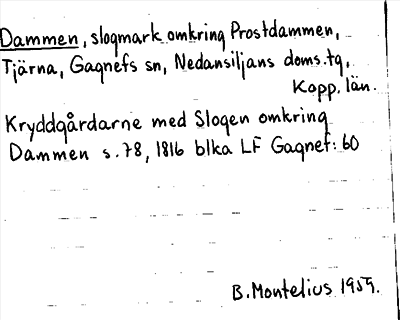 Dammen, slogmark omkring Prostdammen,
Tjärna, Gagnefs sn, Nedansiljans doms.tg,
Kopp. län.
Kryddgårdarne med Slogen omkring
Dammen s.78, 1816 blka LF Gagnef: 60
B. Montelius 1959.